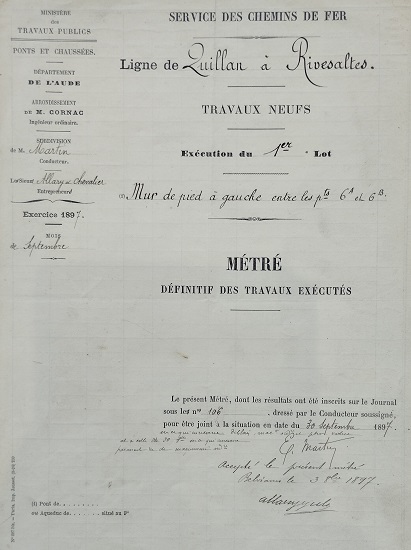 MINISTÈRE
des
TRAVAUX PUBLICS
PONTS ET CHAUSSÉES.
DÉPARTEMENT
DE L'AUDE
ARRONDISSEMENT
DE M. CORNAC
Ingénieur ordinaire.
SUBDIVISION
de M. Martin
Conducteur.
Les Sieurs Allary et Chevalier
Entrepreneurs
Exercice 1897.
MOIS
de Septembre
SERVICE DES CHEMINS DE FER
Ligne de Quillan à Rivesaltes.
TRAVAUX NEUFS
Exécution du 1er Lot
(1) Mur de pied à gauche entre les pts 6A et 6B.
MÉTRÉ
DÉFINITIF DES TRAVAUX EXÉCUTÉS
Le présent Métré, dont les résultats ont été inscrits sur le Journal
sous les nos 106, dressé par le Conducteur soussigné,
pour être joint à la situation du 30 Septembre 1897.
Martin
Accepté le présent métré
le 3 8bre 1897.
(1) Pont de
ou Aqueduc de situé au P